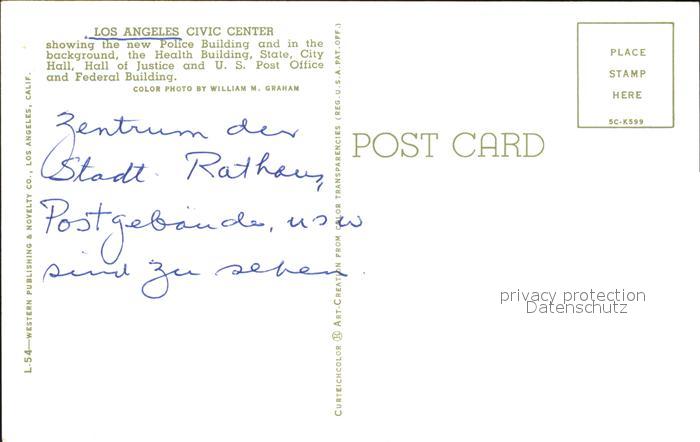 LOS ANGELES CIVIC CENTER
showing the new Police Building and in the
background, the Health Building, State, City
Hall, Hall of Justice and U. S. Post Office
and Federal Building.
COLOR PHOTO BY WILLIAM M. GRAHAM
Zentrum der
Stadt. Rathaus,
Postgebäude, usw
sind zu sehen.
L-54—WESTERN PUBLISHING & NOVELTY CO., LOS ANGELES, CALIF.
CURTEICHCOLOR ART-CREATION FROM COLOR TRANSPARENCIES (REG. U.S.A. PAT. OFF.)
POST CARD
PLACE
STAMP
HERE
5C-K599
privacy protection
Datenschutz